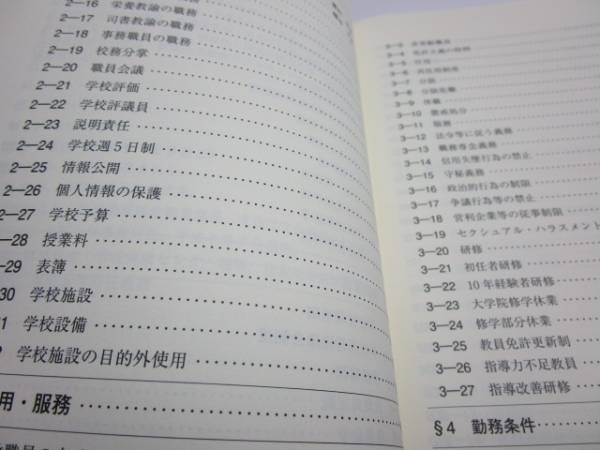 2—16 栄養教諭の職務
2—17 司書教諭の職務
2—18 事務職員の職務
2—19 校務分掌
2—20 職員会議
2—21 学校評価
2—22 学校評議員
2—23 説明責任
2—24 学校週5日制
2—25 情報公開
2—26 個人情報の保護
2—27 学校予算
—28 授業料
—29 表簿
30 学校施設
1 学校設備
学校施設の目的外使用
用・服務
3—5 任用
3—6 再任用制度
3—7 分限
3—8 分限免職
3—9 休職
3—10 懲戒処分
3—11 服務
3—12 法令等に従う義務
3—13 職務専念義務
3—14 信用失墜行為の禁止
3—15 守秘義務
3—16 政治的行為の制限
3—17 争議行為等の禁止
3—18 営利企業等の従事制限
3—19 セクシュアル・ハラスメント
3—20 研修
3—21 初任者研修
3—22 10年経験者研修
3—23 大学院修学休業
3—24 修学部分休業
3—25 教員免許更新制
3—26 指導力不足教員
3—27 指導改善研修
§4 勤務条件